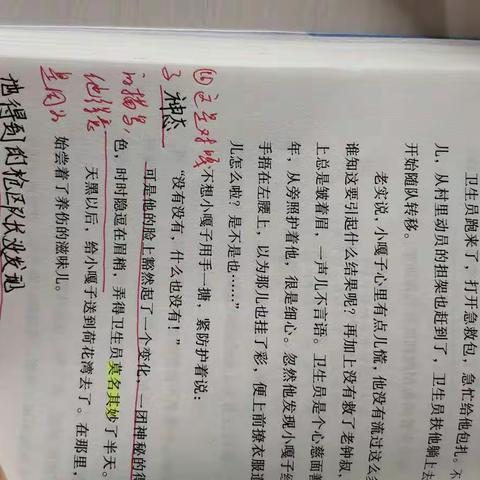 卫生员跑来了，打开急救包，急忙给他包扎。不
儿，从村里动员的担架也赶到了，卫生员扶他躺上去
开始随队转移。
老实说，小嘎子心里有点儿慌，他没有流过这么
谁知这要引起什么结果呢？再加上没有救了老钟叔，
上总是皱着眉，一声儿不言语。卫生员是个心慈面善
年，从旁照护着他，很是细心。忽然他发现小嘎子
手捂在左腰上，以为那儿也挂了彩，便上前撩衣服
儿怎么啦？是不是也……”
不想小嘎子用手一搪，紧防护着说：
“没有没有，什么也没有！”
可是他的脸上豁然起了一个变化，一团神秘的得
色，时时隐逗在眉梢，弄得卫生员莫名其妙了半天。
天黑以后，给小嘎子送到荷花湾去了。在那里，
始尝着了养伤的滋味儿。
这是对嘎
子神态
的描写，
他得意
是因为
他得到的枪区队长没发现